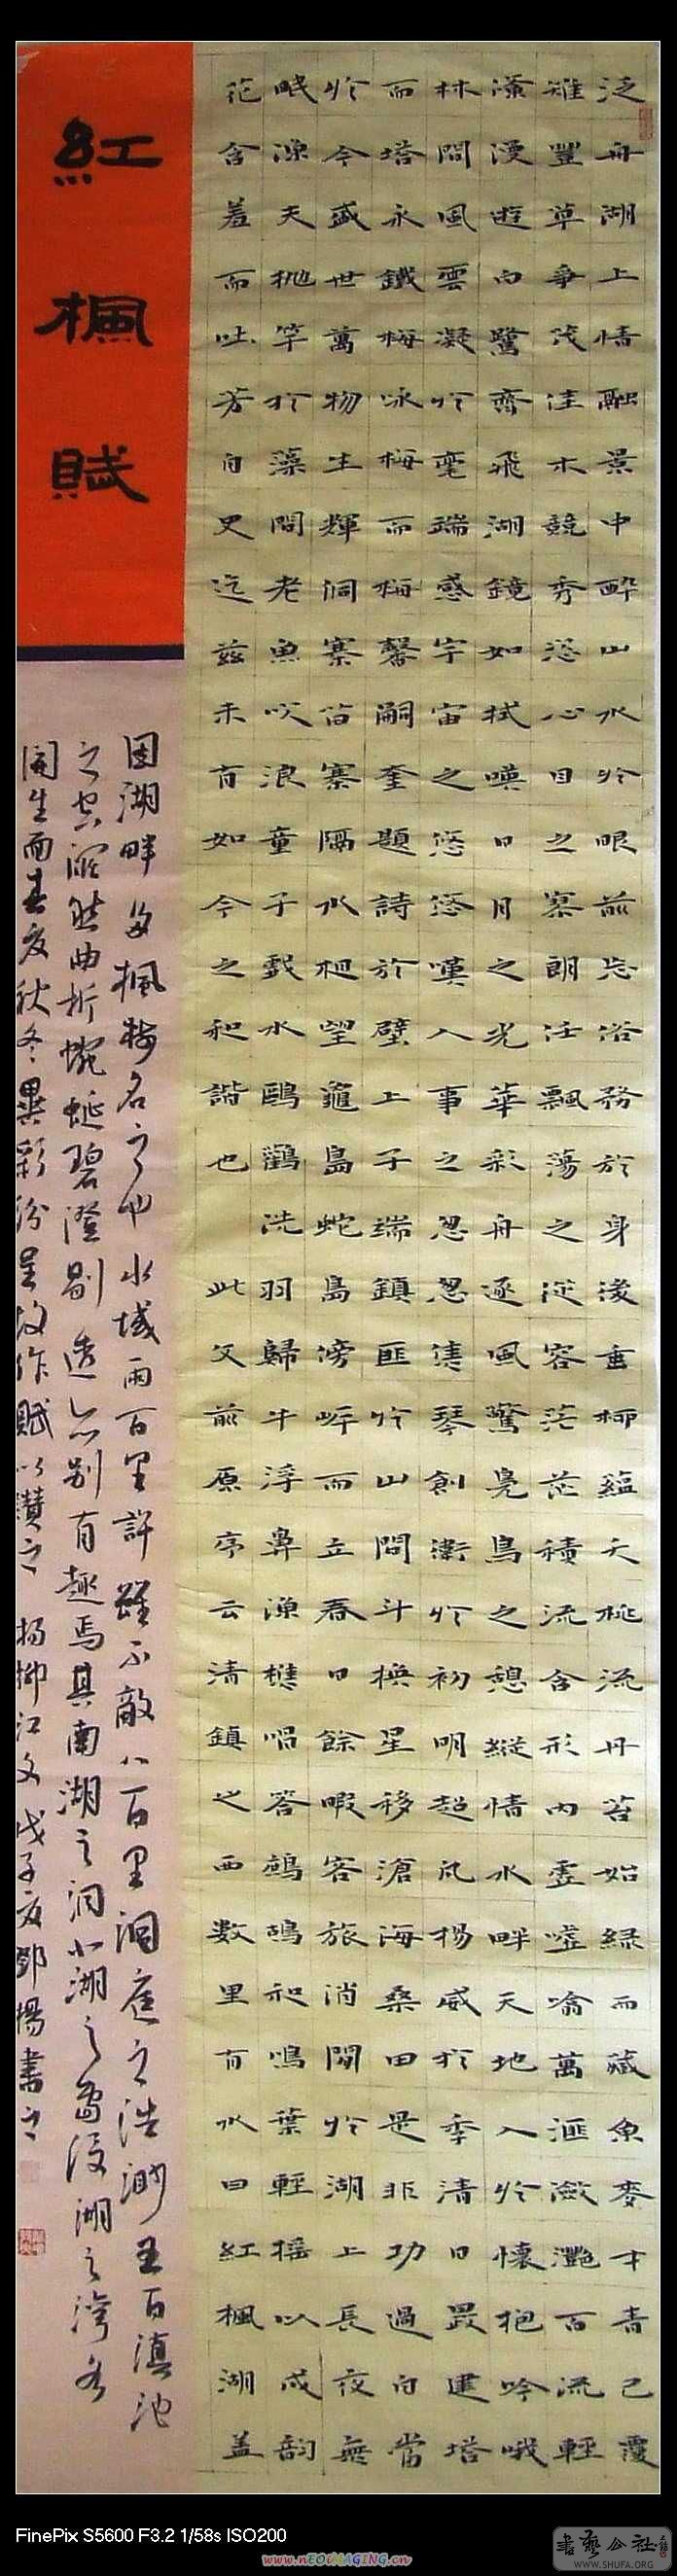 紅楓賦
泛舟湖上情融景中醉山水於眼前忘俗務於身後垂柳蘊夭桃流丹苔始綠而藏魚麥才青已覆
雉豐草爭茂佳木競秀恣心目之寨朗任飄蕩之從容茫茫積流含形內虛噓噏萬滙瀲灧百流輕
漾漫遊白鷺齊飛湖鏡如拭嘆日月之光華彩舟逐風驚鳧鳥之憩縱情水畔天地入於懷抱吟哦
林間風雲凝於毫端感宇宙之悠悠嘆人事之忽忽雋琴創衛於初明超凡揚威於季清日昃建塔
而塔永鐵梅咏梅而梅馨嗣奎題詩於壁上子端鎮匪於山間斗換星移滄海桑田是非功過白當
於今盛世萬物生輝洞寨苗寨隔水相望龜島蛇島傍岸而立春日餘暇客旅消閒於湖上長夜無
眠漁夫拋竿於藻間老魚吹浪童子戲水鷗鸛洗羽歸牛浮鼻漁樵唱答鷓鴣和鳴葉輕搖以成韵
花含羞而吐芳自史迄茲未有如今之和諧也 此文前原序云清鎮之西數里有水曰紅楓湖蓋
因湖畔多楓樹名之也水域兩百里許雖不敵八百里洞庭之浩渺五百滇池
之空濶然曲折蜿蜒碧澄剔透亦別有趣焉其南湖之洞北湖之島後湖之灣各
開生面春夏秋冬異彩紛呈故作賦以讚之 楊柳江文戊子夏鄧揚書之
FinePix S5600 F3.2 1/58s ISO200
www.nEOiMAGiNG.cn
書藝公社
WWW.SHUFA.ORG